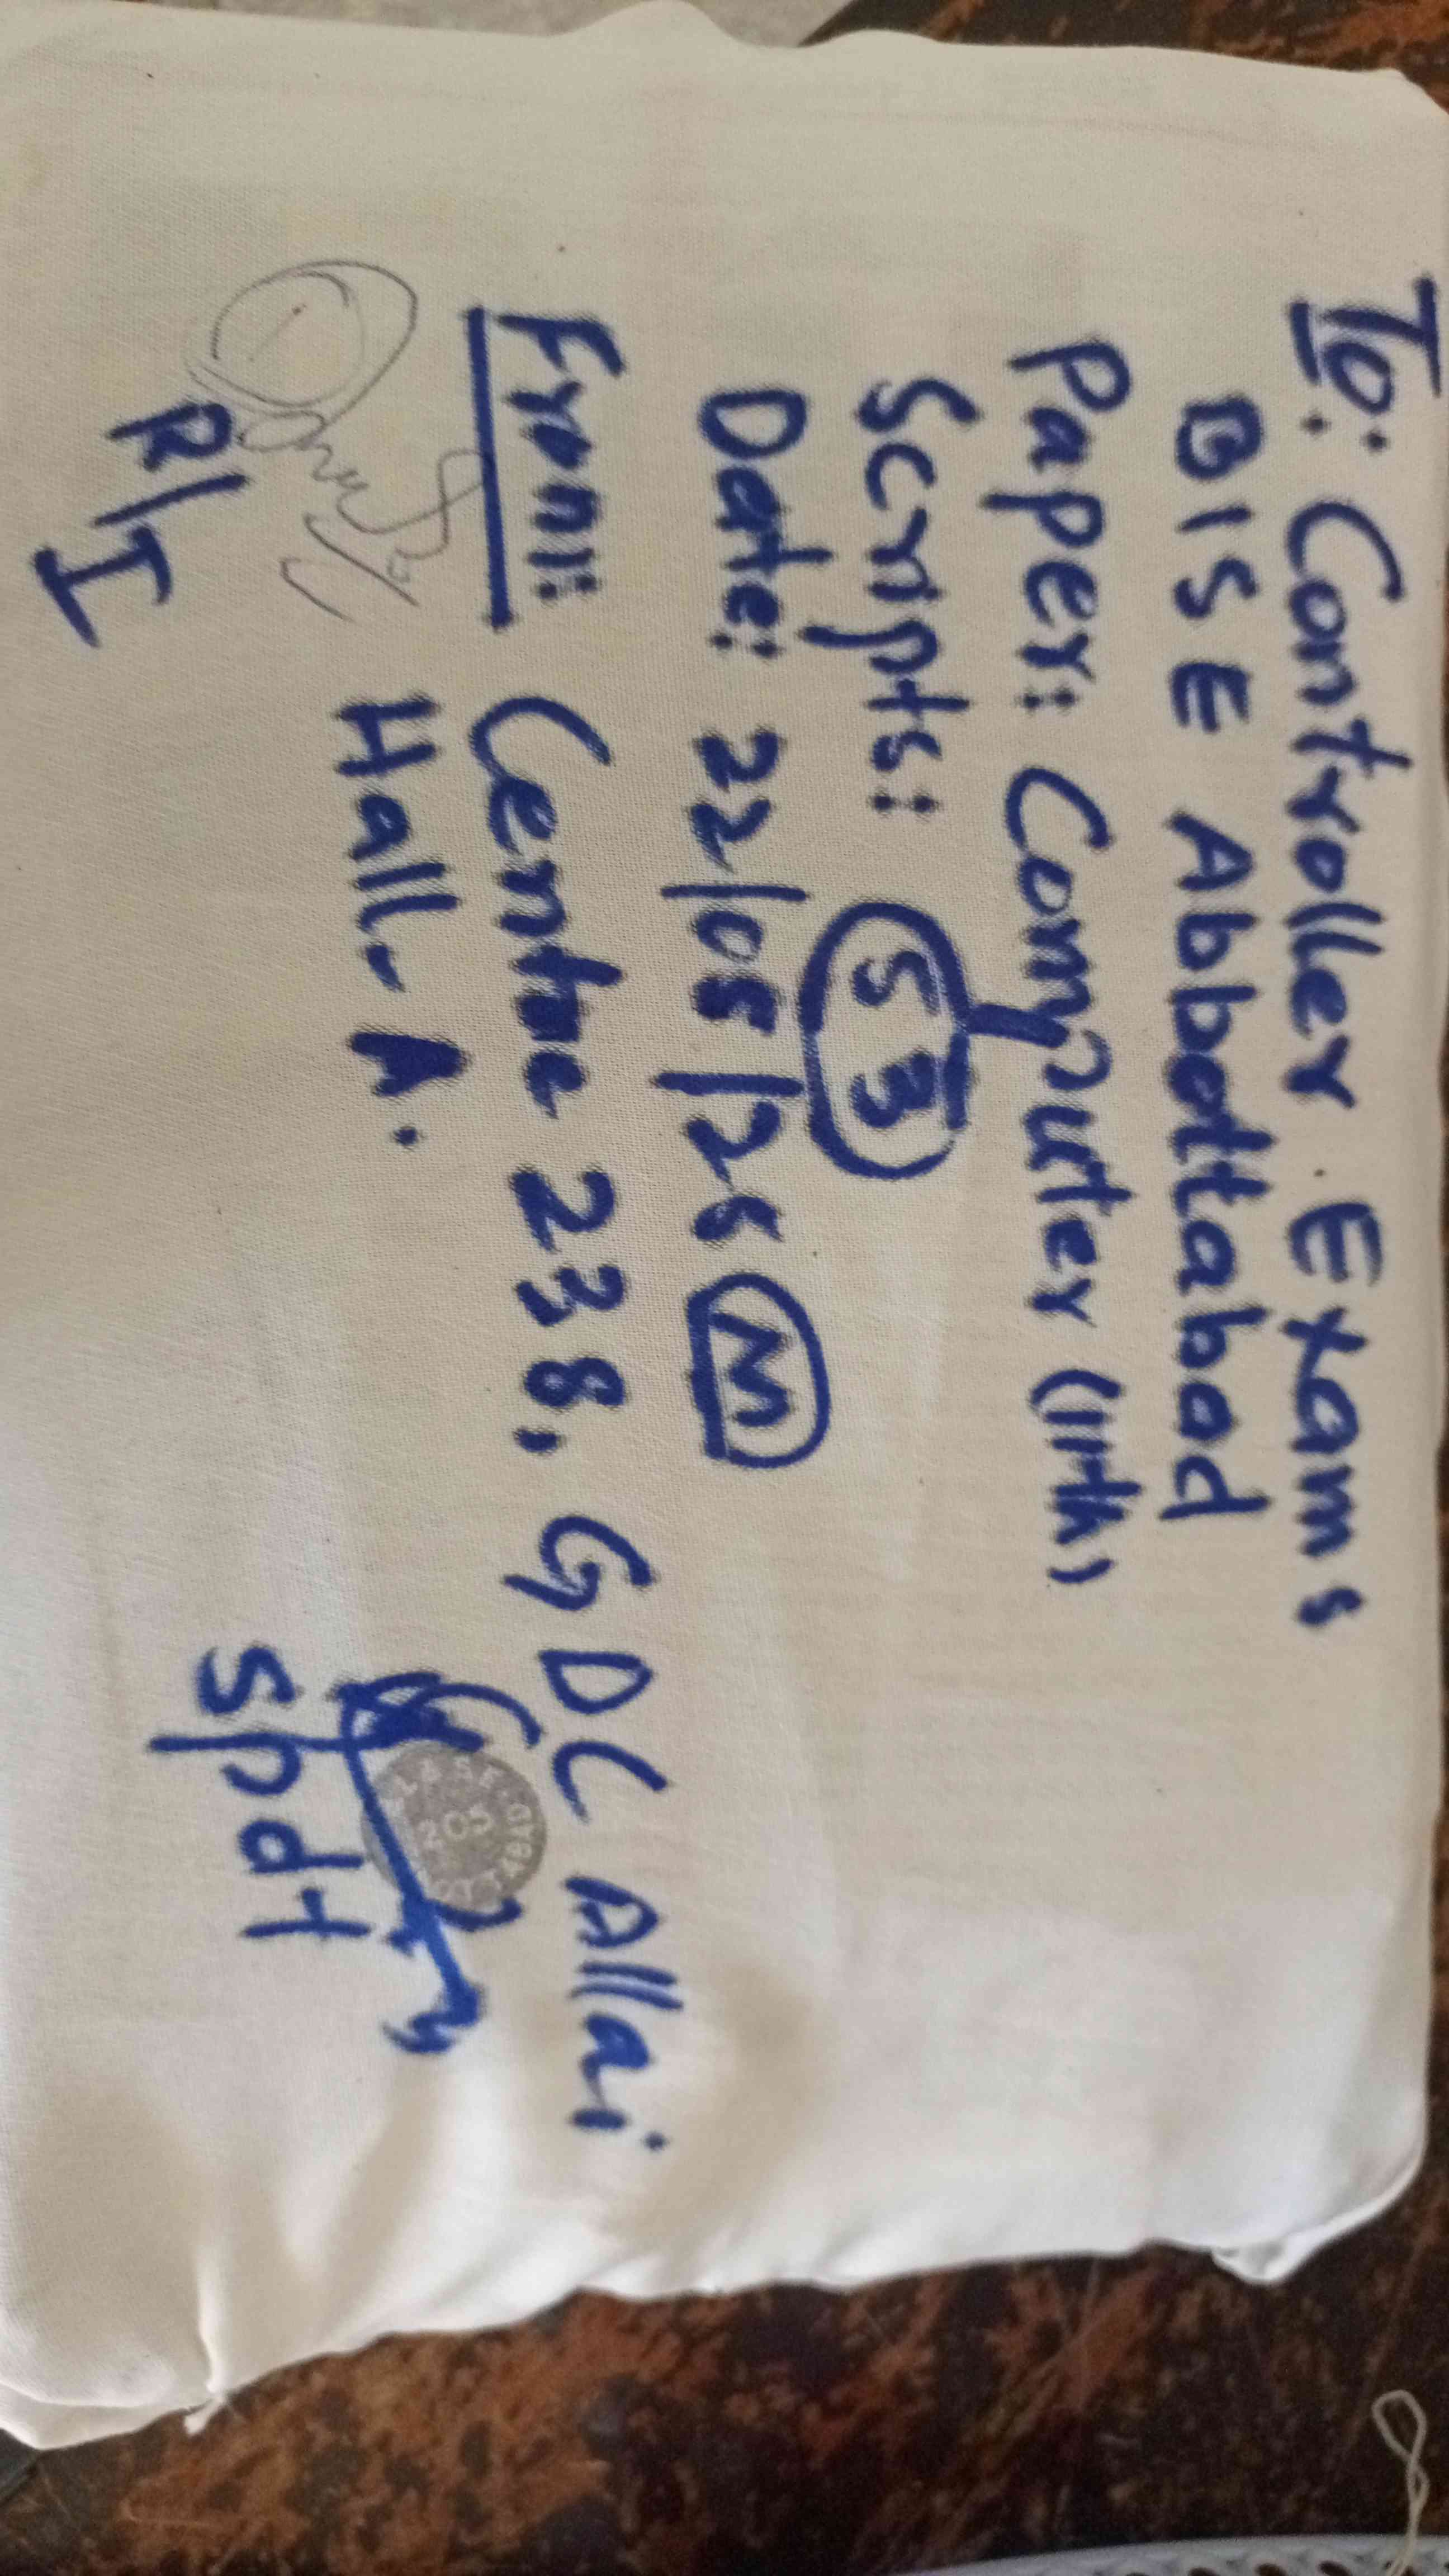 To: Controller Exams
BISE Abbottabad
Paper: Computer (11th)
Scripts: 53
Date: 22/05/25 M
From: Centre 238, GDC Allai
Hall-A.
205
R/I
Spdt